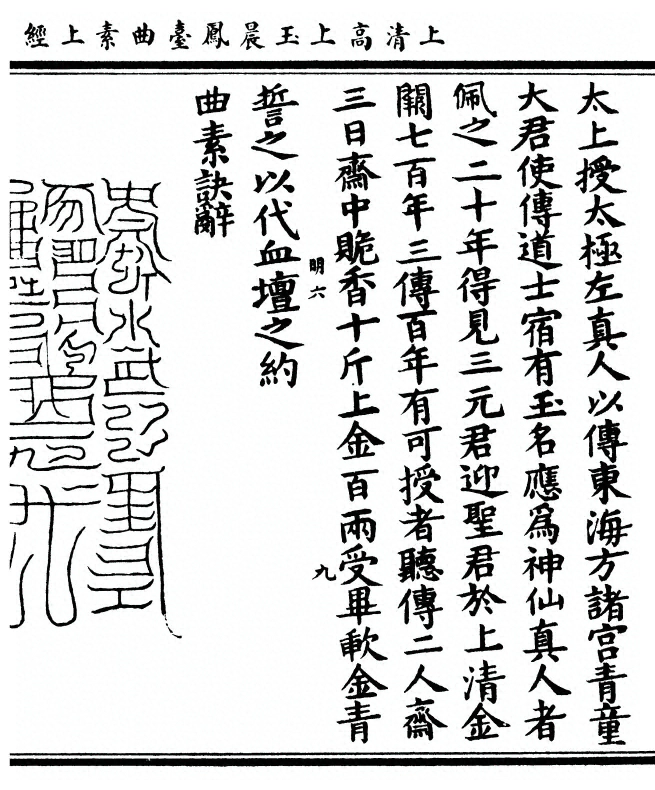 上清高上玉晨鳳臺曲素上經
太上授太極左真人以傳東海方諸宮青童
大君使傳道士宿有玉名應為神仙真人者
佩之二十年得見三元君迎聖君於上清金
闕七百年三傳百年有可授者聽傳二人齋
三日齋中跪香十斤上金百兩受畢軟金青
明六
九
誓之以代血壇之約
曲素訣辭